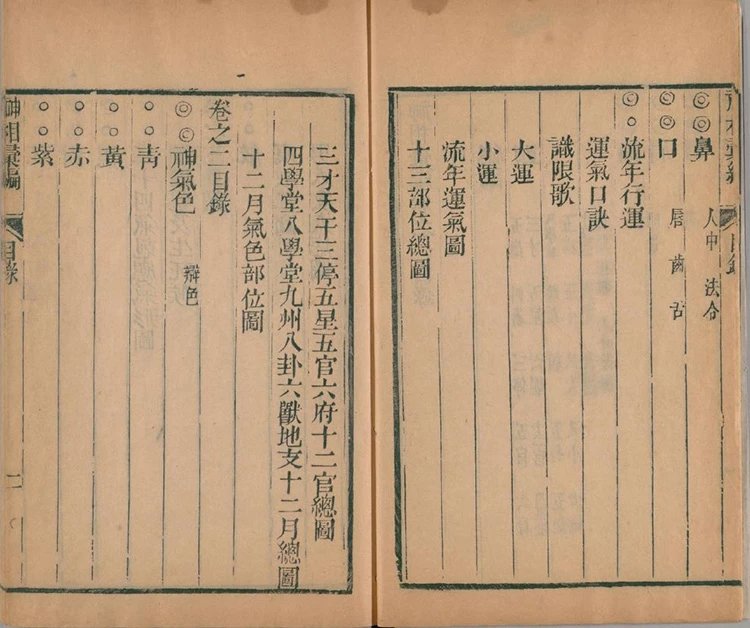 ◎◎鼻 人中 法令
◎◎口 唇 齒 舌
◎◎流年行運
運氣口訣
識限歌
大運
小運
流年運氣圖
十三部位總圖
三才天干三停五星五官六府十二官總圖
四學堂八學堂九州八卦六獸地支十二月總圖
十二月氣色部位圖
卷之二目錄
◎◎神氣色 辯色
○○青
○○黃
○○赤
○○紫
神相彙編 目錄 二